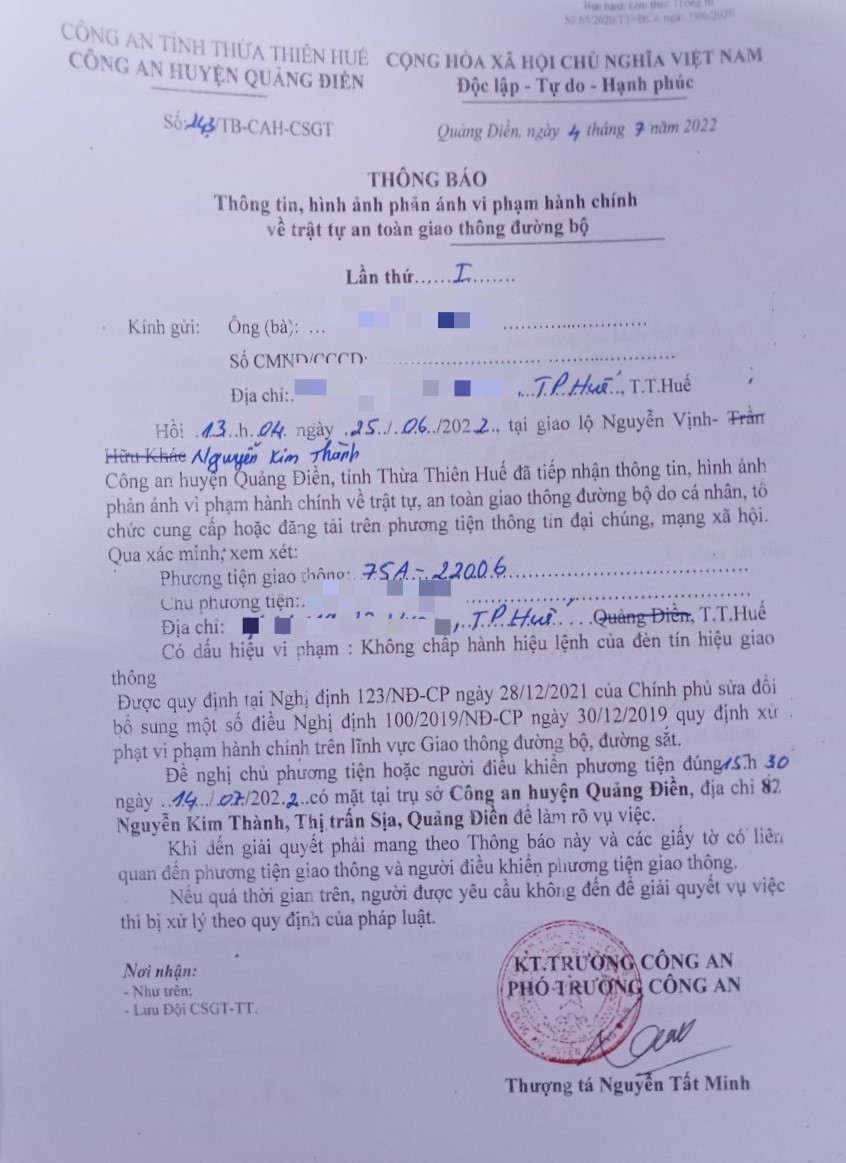 Ban hành kèm theo Thông tư
Số 65/2020/TT-BCA ngày 19/6/2020
CÔNG AN TỈNH THỪA THIÊN HUẾ
CÔNG AN HUYỆN QUẢNG ĐIỀN
CỘNG HÒA XÃ HỘI CHỦ NGHĨA VIỆT NAM
Độc lập - Tự do - Hạnh phúc
Số: 243/TB-CAH-CSGT
Quảng Điền, ngày 4 tháng 7 năm 2022
THÔNG BÁO
Thông tin, hình ảnh phản ánh vi phạm hành chính
về trật tự an toàn giao thông đường bộ
Lần thứ......I.......
Kính gửi: Ông (bà): ...
Số CMND/CCCD:
Địa chỉ:. ,..T.P.Huế.., T.T.Huế
Hồi .13..h.04. ngày .25../.06../2022., tại giao lộ Nguyễn Vịnh- Trần
Hữu Khác Nguyễn Kim Thành
Công an huyện Quảng Điền, tỉnh Thừa Thiên Huế đã tiếp nhận thông tin, hình ảnh
phản ánh vi phạm hành chính về trật tự, an toàn giao thông đường bộ do cá nhân, tổ
chức cung cấp hoặc đăng tải trên phương tiện thông tin đại chúng, mạng xã hội.
Qua xác minh, xem xét:
Phương tiện giao thông: 75A - 220.06
Chủ phương tiện:.
Địa chỉ: ,..T.P.Huế.....Quảng Điền, T.T.Huế
Có dấu hiệu vi phạm : Không chấp hành hiệu lệnh của đèn tín hiệu giao
thông
Được quy định tại Nghị định 123/NĐ-CP ngày 28/12/2021 của Chính phủ sửa đổi
bổ sung một số điều Nghị định 100/2019/NĐ-CP ngày 30/12/2019 quy định xử
phạt vi phạm hành chính trên lĩnh vực Giao thông đường bộ, đường sắt.
Đề nghị chủ phương tiện hoặc người điều khiển phương tiện đúng 15.h 30
ngày ..14../07/202.2..có mặt tại trụ sở Công an huyện Quảng Điền, địa chỉ 82
Nguyễn Kim Thành, Thị trấn Sịa, Quảng Điền để làm rõ vụ việc.
Khi đến giải quyết phải mang theo Thông báo này và các giấy tờ có liên
quan đến phương tiện giao thông và người điều khiển phương tiện giao thông.
Nếu quá thời gian trên, người được yêu cầu không đến để giải quyết vụ việc
thì bị xử lý theo quy định của pháp luật.
Nơi nhận:
- Như trên;
- Lưu Đội CSGT-TT.
KT.TRƯỞNG CÔNG AN
PHÓ TRƯỞNG CÔNG AN
Thượng tá Nguyễn Tất Minh